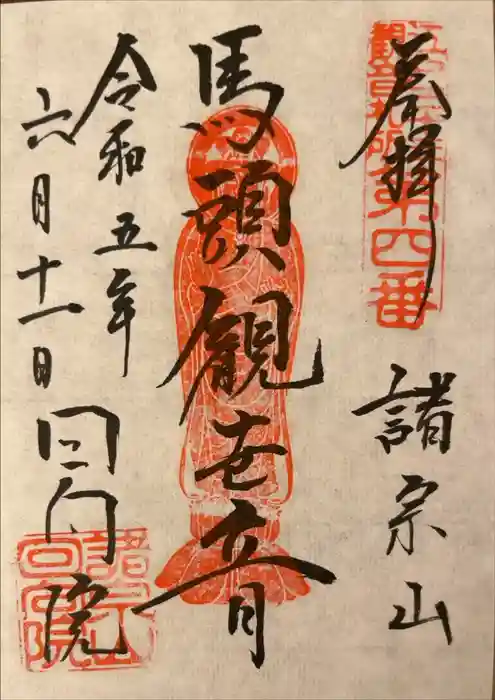 奉拝
観音札所
第四番
諸宗山
馬頭観世音
令和五年
六月十一日
回向院